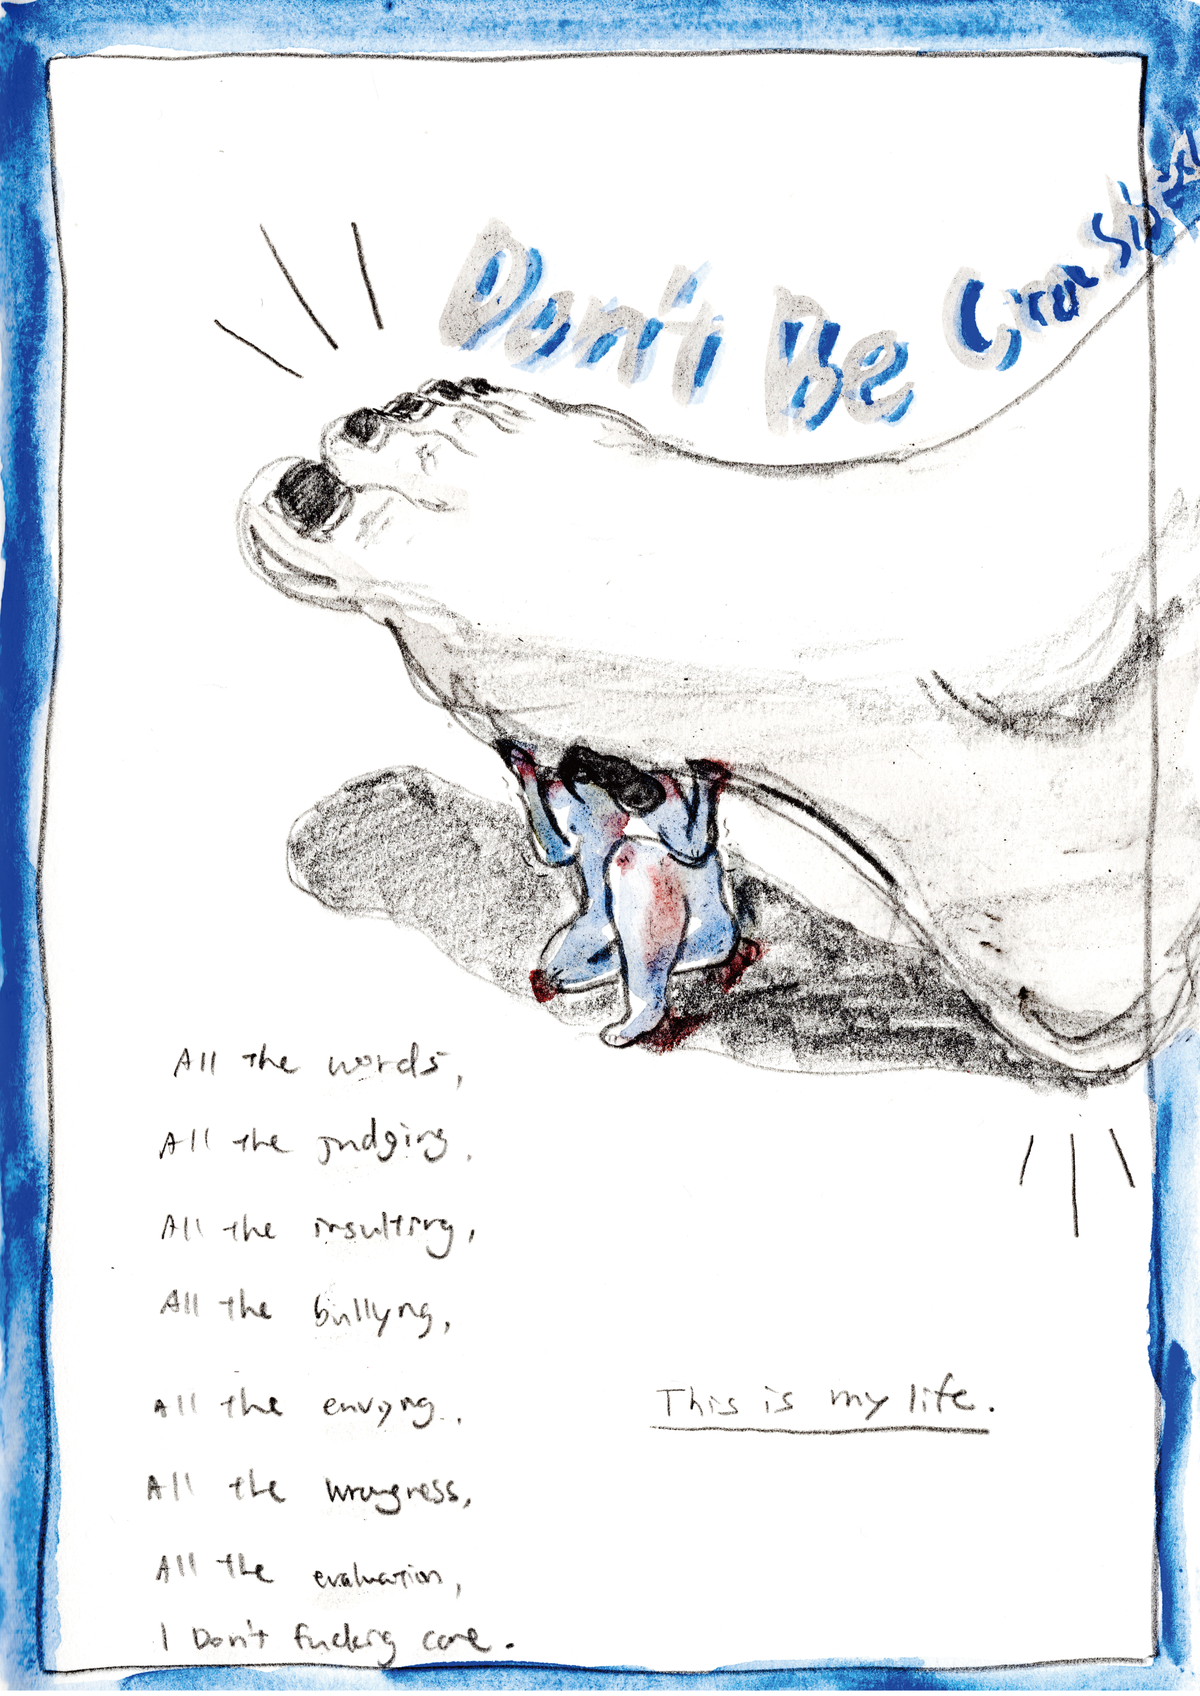 Don't Be Crushed
All the words,
All the judging,
All the insulting,
All the bullyng,
All the envyng,
All the wrongness,
All the evaluation,
I Don't fucking care.
This is my life.